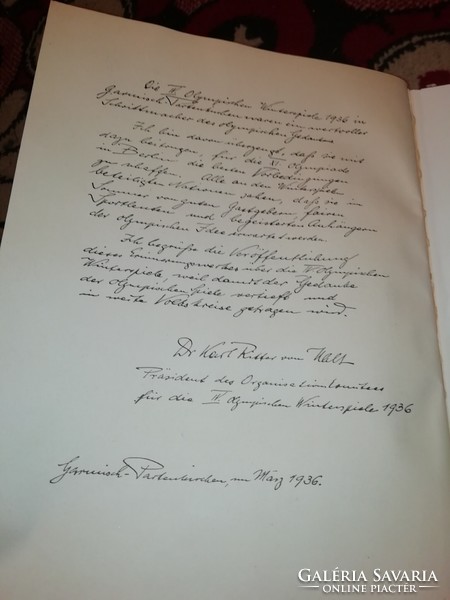 Die IV. Olympischen Winterspiele 1936 in
Garmisch-Partenkirchen waren ein wertvoller
Schrittmacher des olympischen Gedankens
Ich bin davon überzeugt, daß sie mit
dazu beitragen, für die XI. Olympiade
in Berlin die besten Vorbedingungen
zu schaffen. Alle an den Winterspielen
beteiligten Nationen sahen, daß sie im
Sommer von guten Gastgebern, fairen
Sportsleuten und begeisterten Anhängern
der olympischen Idee erwartet werden.
Ich begrüße die Veröffentlichung
dieses Sammlungswerkes über die IV. Olympischen
Winterspiele, weil damit der Gedanke
der Olympischen Spiele vertieft und
in weite Volkskreise getragen wird.
Dr Karl Ritter von Halt
Präsident des Organisationskomitees
für die IV. Olympischen Winterspiele 1936
Garmisch-Partenkirchen, im März 1936.
GALÉRIA SAVARIA
ONLINE PIACTÉR